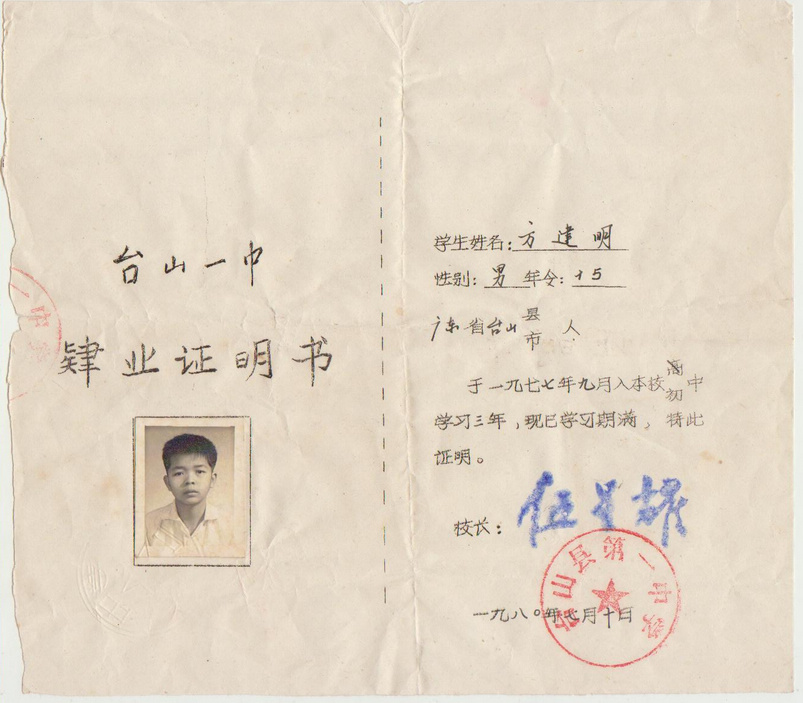 台山一中
肄业证明书
学生姓名：方建明
性别：男 年令：15
广东省台山 县 市 人
于一九七七年九月入本校 高 初 中
学习三年，现已学习期满，特此
证明。
校长：
台山县第一中
一九八〇年七月十日